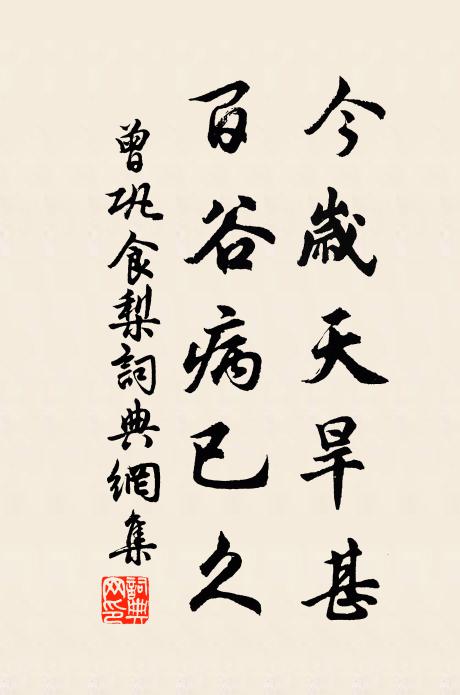 今歲天旱甚
百谷病已久
曾巩食梨詞典網集
詞典
網印